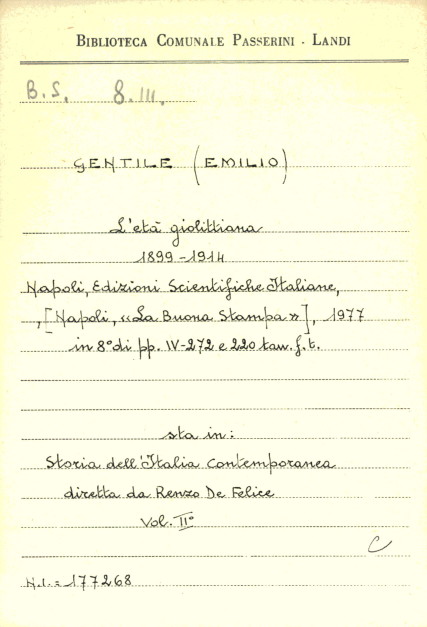 BIBLIOTECA COMUNALE PASSERINI - LANDI
B.S. 8.III.
GENTILE (EMILIO)
L'età giolittiana
1899-1914
Napoli, Edizioni Scientifiche Italiane,
,[Napoli, «La Buona Stampa»], 1977
in 8° di pp. IV-272 e 220 tav. f. t.
sta in:
Storia dell'Italia Contemporanea
diretta da Renzo De Felice
Vol. II°
C
N.I.= 177268